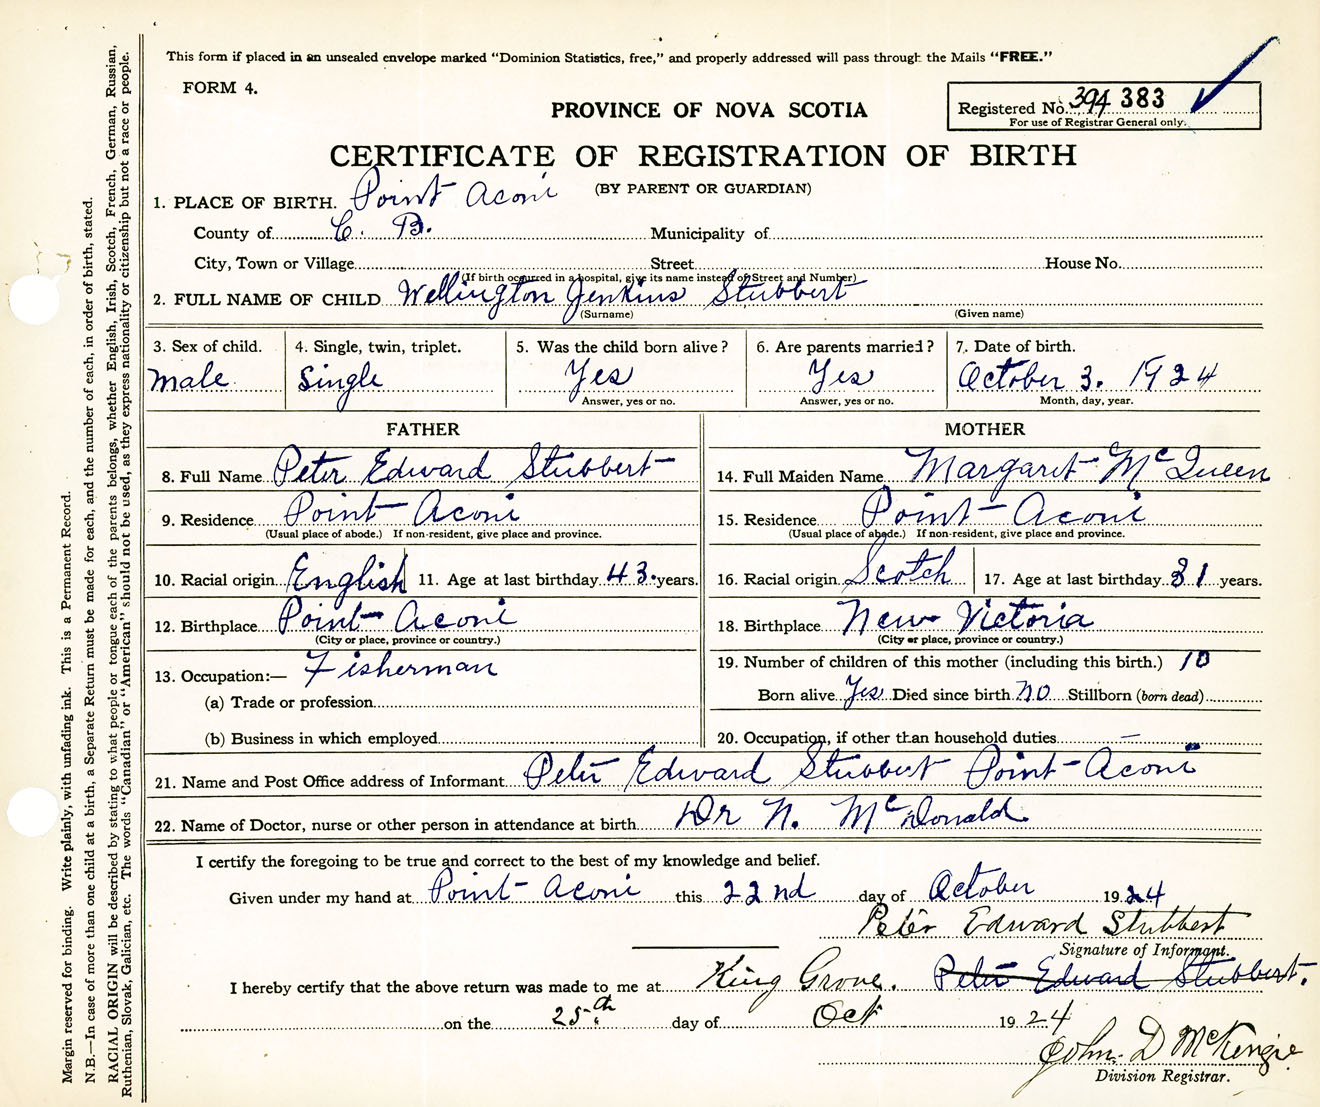 This form if placed in an unsealed envelope marked “Dominion Statistics, free,” and properly addressed will pass through the Mails “FREE.”
FORM 4.
Registered No. 394 383
For use of Registrar General only.
PROVINCE OF NOVA SCOTIA
CERTIFICATE OF REGISTRATION OF BIRTH
(BY PARENT OR GUARDIAN)
1. PLACE OF BIRTH. Point Aconi
County of C. B. Municipality of
City, Town or Village Street House No.
(If birth occurred in a hospital, give its name instead of Street and Number)
2. FULL NAME OF CHILD Wellington Jenkins Stubbert
(Surname) (Given name)
3. Sex of child. 4. Single, twin, triplet. 5. Was the child born alive? 6. Are parents married? 7. Date of birth.
male Single Yes Yes October 3. 1924
Answer, yes or no. Answer, yes or no. Month, day, year.
FATHER
8. Full Name Peter Edward Stubbert
9. Residence Point Aconi
(Usual place of abode.) If non-resident, give place and province.
10. Racial origin English 11. Age at last birthday 43. years.
12. Birthplace Point Aconi
(City or place, province or country.)
13. Occupation:— Fisherman
(a) Trade or profession
(b) Business in which employed
MOTHER
14. Full Maiden Name Margaret McQueen
15. Residence Point Aconi
(Usual place of abode.) If non-resident, give place and province.
16. Racial origin Scotch 17. Age at last birthday 31 years.
18. Birthplace New Victoria
(City or place, province or country.)
19. Number of children of this mother (including this birth.) 10
Born alive Yes Died since birth no Stillborn (born dead)
20. Occupation, if other than household duties —
21. Name and Post Office address of Informant Peter Edward Stubbert Point Aconi
22. Name of Doctor, nurse or other person in attendance at birth Dr N. McDonald
I certify the foregoing to be true and correct to the best of my knowledge and belief.
Given under my hand at Point Aconi this 22nd day of October 1924
Peter Edward Stubbert
Signature of Informant.
I hereby certify that the above return was made to me at King Grove. Peter Edward Stubbert.
on the 25th day of Oct 1924
John D McKenzie
Division Registrar.
Margin reserved for binding. Write plainly, with unfading ink. This is a Permanent Record.
N.B.—In case of more than one child at a birth, a Separate Return must be made for each, and the number of each, in order of birth, stated.
RACIAL ORIGIN will be described by stating to what people or tongue each of the parents belongs, whether English, Irish, Scotch, French, German, Russian,
Ruthenian, Slovak, Galician, etc. The words “Canadian” or “American” should not be used, as they express nationality or citizenship but not a race or people.